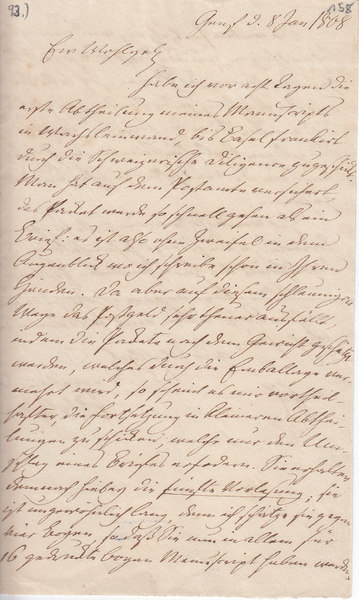 93.)
158
Genf d. 8 Jan 1808
Ew Wohlgeb.
habe ich vor acht Tagen die
erste Abtheilung meines Manuscripts
in Wachsleinwand, bis Basel frankirt
durch die Schweizerische Diligence zugeschickt.
Man hat auf dem Postamte versichert,
das Packet werde so schnell gehen als ein
Brief: es ist also ohne Zweifel in dem
Augenblick wo ich schreibe schon in Ihren
Händen. Da aber auf diesem schleunigen
Wege das Postgeld sehr theuer ausfällt,
indem die Packete nach dem Gewicht geschätzt
werden, welches durch die Emballage ver-
mehrt wird, so scheint es mir vortheil-
hafter, die Fortsetzung in kleineren Abthei-
lungen zu schicken, welche nur den Um-
schlag eines Briefes erfodern. Sie erhalten
demnach hiebey die fünfte Vorlesung, sie
ist ungewöhnlich lang, denn ich schätze sie gegen
vier Bogen, so daß Sie nun in allem für
16 gedruckte Bogen Manuscript haben werden.